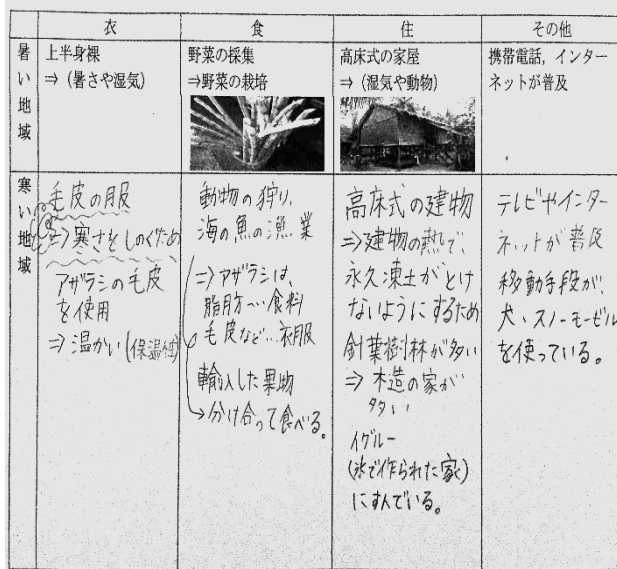 衣
食
住
その他
暑い地域
上半身裸
⇒（暑さや湿気）
野菜の採集
⇒野菜の栽培
高床式の家屋
⇒（湿気や動物）
携帯電話，インター
ネットが普及
寒い地域
毛皮の服
⇒寒さをしのぐため
アザラシの毛皮
を使用
⇒温かい(保温性)
動物の狩り、
海の魚の漁業
⇒アザラシは、
脂肪…食料
毛皮など…衣服
輸入した果物
→分け合って食べる。
高床式の建物
⇒建物の熱で、
永久凍土がとけ
ないようにするため
針葉樹林が多い
⇒木造の家が
多い
イグルー
(氷で作られた家)
にすんでいる。
テレビやインター
ネットが普及
移動手段が、
犬、スノーモービル
を使っている。